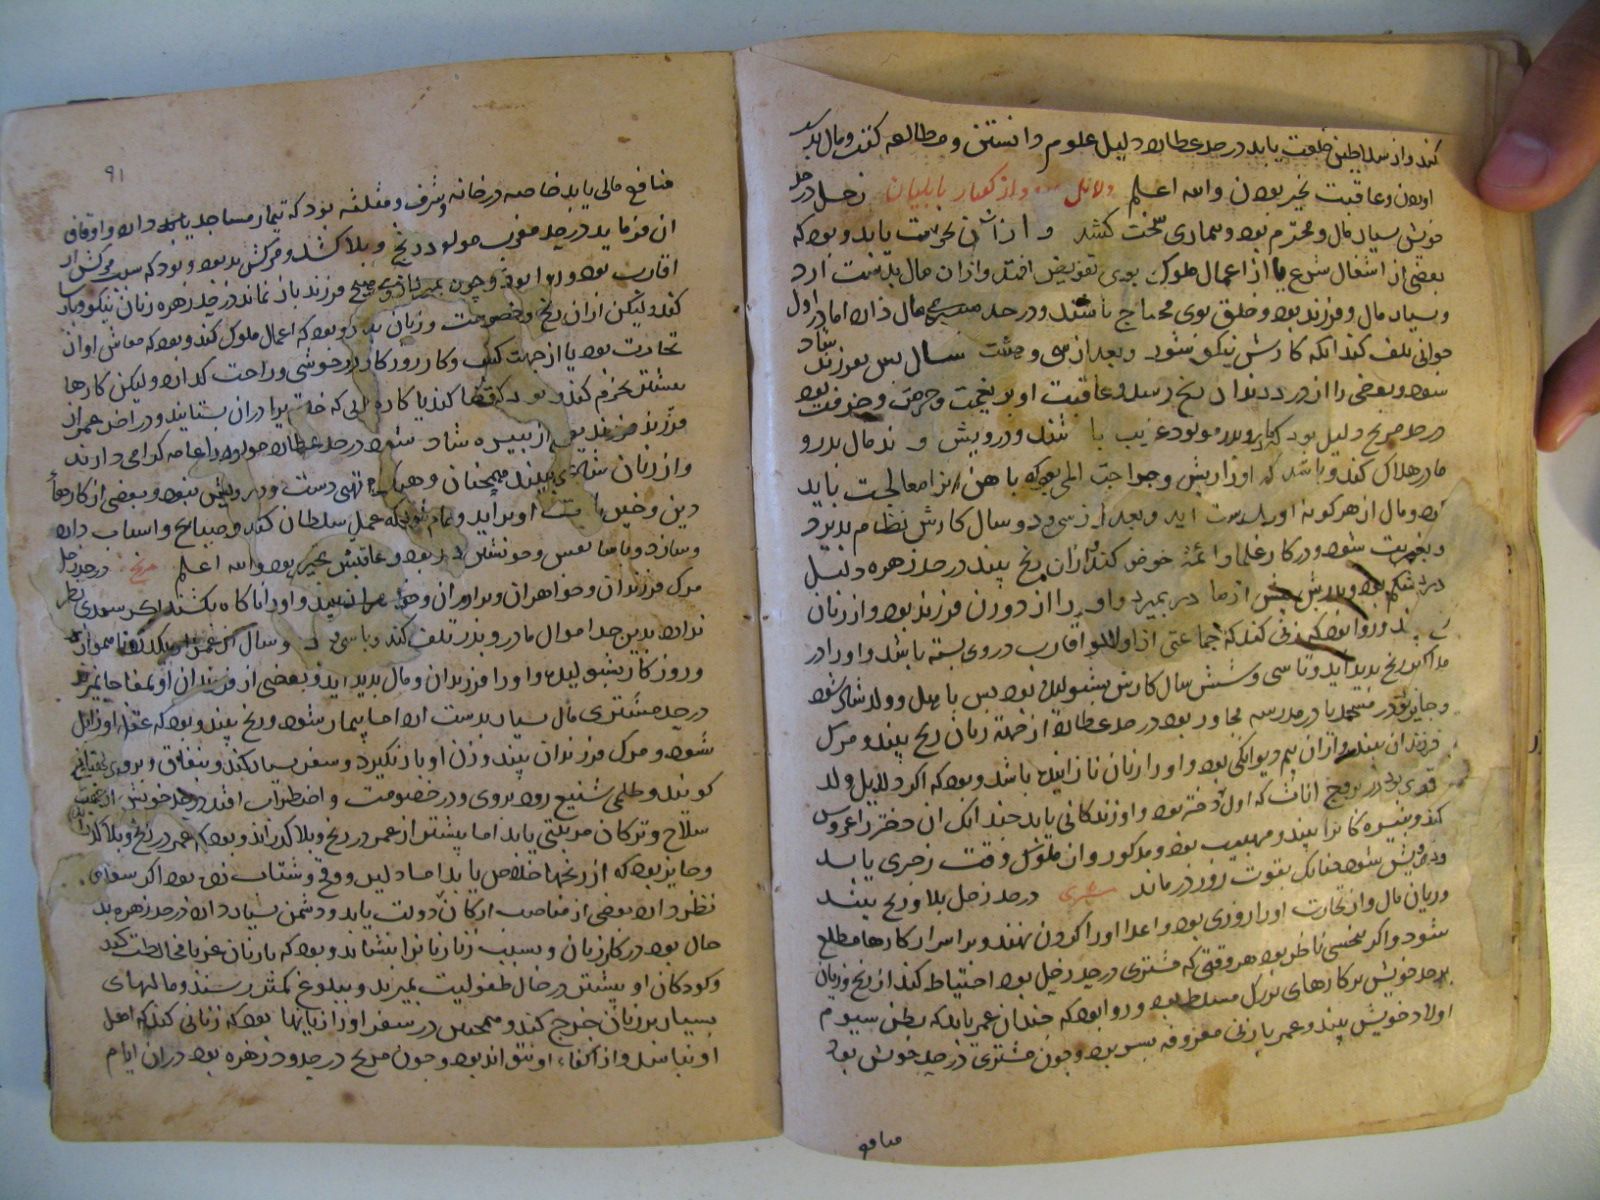 کند و از سلاطین خلعت یابد در حد عطارد دلیل علوم دانستن و مطالعه کتب و مال بد
او بود و عاقبت بخیر بود و الله اعلم دلائل از کفتار بابلیان زحل در حد
خویش بسیار مال و محترم بود و بیماری سخت کشد و از آتش نحوست یابد و بود که
بعضی از اشغال شرع یا از اعمال ملوک بوی تفویض افتد و از ان مال بدست ارد
و بسیار مال و فرزند بود و خلق بوی محتاج باشند و در حد مال دارد اما در اول
جوانی تلف کند انکه کارش نیکو شود و بعد از سی و هشت سال بس
شود و بعضی را از درد دندان رنج رسد و عاقبت او بر نعمت و حرمت و
در حد مریخ دلیل بود که مولود غریب با و درویش و مال
مادر هلاک کند و باشد که اورا ریش و جراحت المی بود که باهن انرا معالجت باید
کرد و مال از هر کونه اورا بدست اید و بعد از سی و دو سال کارش نظام پذیرد
و شود و در کار علما و ائمه خوض کند و از ان رنج بیند در حد زهره دلیل
درد شکم بود و پدرش پیش از مادر بمیرد و اورا از دو زن فرزند بود و از زنان
و روا بود که زنی کند که جماعتی از اولاد و اقارب در وی بسته باشد و اورا در
رنج پدید اید و تا سی و شش سال کارش بشولیده بود پس با اهل و ولد شاد شود
و جایز بود در مسجد یا در مدرسه مجاور بود در حد عطارد از جهة زنان رنج بیند و مرک
فرزندان بیند و از ان بیم دیوانکی بود و اورا زنان نازاینده باشد و بود که اکر دلایل ولد
قوی بود در بروج اناث که اول دختر بود و او زندکانی یابد چندانک ان دختر را عروس
کند و نبیره کانرا بیند و مهیب بود و مذکور و از ملوک وقت زجری یابد
و درویش شود چنانک بقوت روز در ماند مشتری در حد زحل بلا و رنج بیند
و زیان مال و از تجارت اورا روزی بود و اعدا اورا کردن نهند و بر اسرار کارها مطلع
شود و اکر نحسی ناظر بود هر وقتی که مشتری در حد زحل بود احتیاط کند از رنج و زیان
بر حد خویش بر کارهای بزرک مسلط بود و روا بود که چندان عمر یابد که بطن سیوم
اولاد خویش بیند و عمر با زنی معروفه بسر برد و چون مشتری در حد خویش بود
منافع
۹۱
منافع مالی یابد خاصه در خانه و شرف و مثلثه بود که تیمار مساجد یابد دارد و اوقاف
ان فرماید در حد مولود رنج و بلا کشد و مرکش بد بود و بود که سبب مرکش از
اقارب بود و روا بود و چون بمیرد از وی هیچ فرزند باز نماند در حد زهره زنان نیکو و بکر
کند و لیکن از ان رنج و خصومت و زیان بیند و بود که اعمال ملوک کند و بود که معاش او از
تجارت بود یا از جهت کسب و کار و روزکار در خوشی و راحت کذراند و لیکن کارها
کند و بود که کند یا کاردارایی که برادران بستایند و در اخر عمر از
فرزند فرزند یعنی از نبیره شاد شود در حد عطارد مولود را عامه کرامی دارند
و از زنان شادی بیند و همچنان تهی دست و درویش نبود و بعضی از کارهاء
دین و خیر او براید و بود که عمل سلطان کند و ضیاع و اسباب دارد
و سازد و بود و عاقبتش بخیر بود و الله اعلم مریخ در حد زحل
مرک فرزندان و خواهران و برادران بیند و اورا ناکاه بکشند اکر سعدی نظر
ندارد بدین حد اموال مادر و پدر تلف کند و با سی و سال اکر عمر
و روز کارش بشولیده و اورا فرزندان و مال پدید اید و بعضی از فرزندان او بمفاجا بمیرند
در حد مشتری مال بسیار بدست ارد اما بیمار شود و رنج بیند و بود که عقل او زایل
شود و مرک فرزندان بیند و زن او باز نکیرد و سفر بسیار کند و بنفاق و بر وی
کویند و ظلمی شنیع رود بر وی و در خصومت و اضطراب افتد در حد خویش از
سلاح و ترکان مرتبتی یابد اما بیشتر از عمر در رنج و بلا کذراند و بود که عمر در رنج و بلا
و جایز بود که از رنجها خلاص یابد اما دلیر و قوی و شتاب زده بود اکر سعدی
نظر دارد بعضی از مناصب ارکان دولت یابد و دشمن بسیار دارد در حد زهره بد
حال بود در کار زنان و بسبب زنا زنانرا بنشاند و بود که با زنان غربا مخالطت کند
و کودکان او بیشتر در حال طفولیت بمیرند و ببلوغ کمتر رسند و مالهای
بسیار بر زنان خرج کند و همچنین در سفر اورا زیانها بود که زنانی کند که اهل
او نباشد و از اکفاء او نتواند بود و چون مریخ در حدود زهره بود در ان ایام